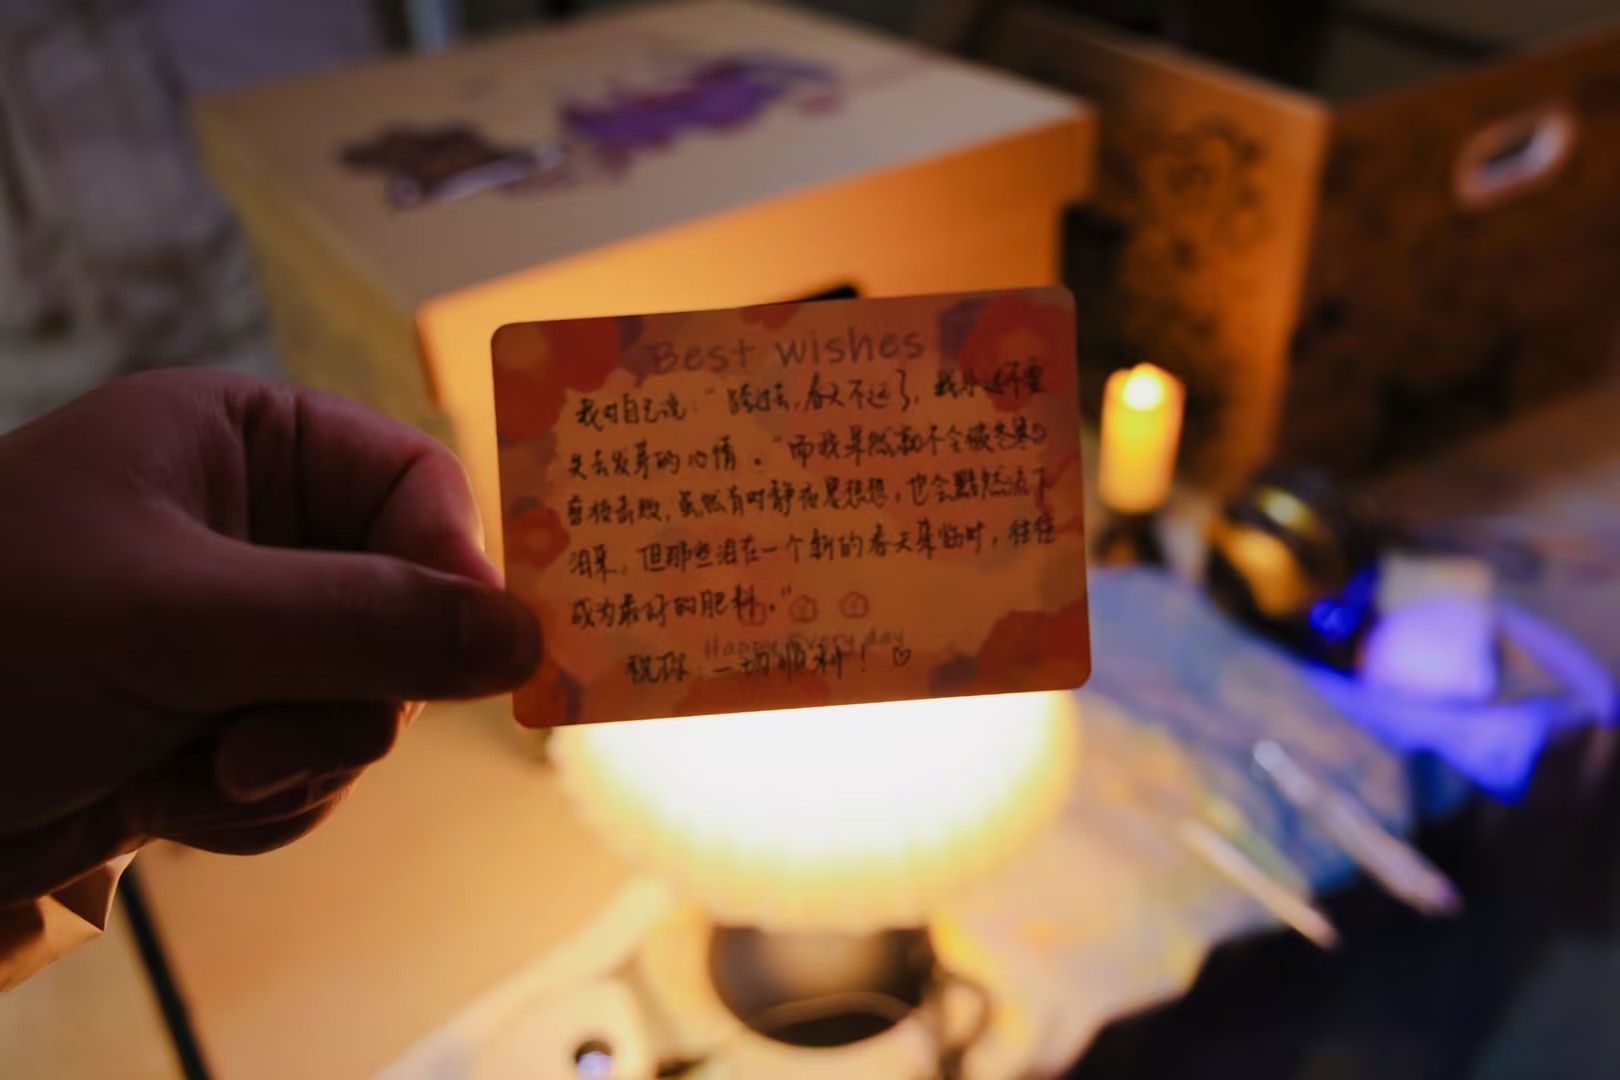 Best wishes
我对自己说：“踏过去，春天不远了，我永远不要
失去发芽的心情。”而我果然就不会被冬寒
剪枝击败，虽然有时静夜里想想，也会黯然流下
泪来，但那些泪在一个新的春天来临时，往往
成为最好的肥料。”
Happy every day
祝你 一切顺利！♡